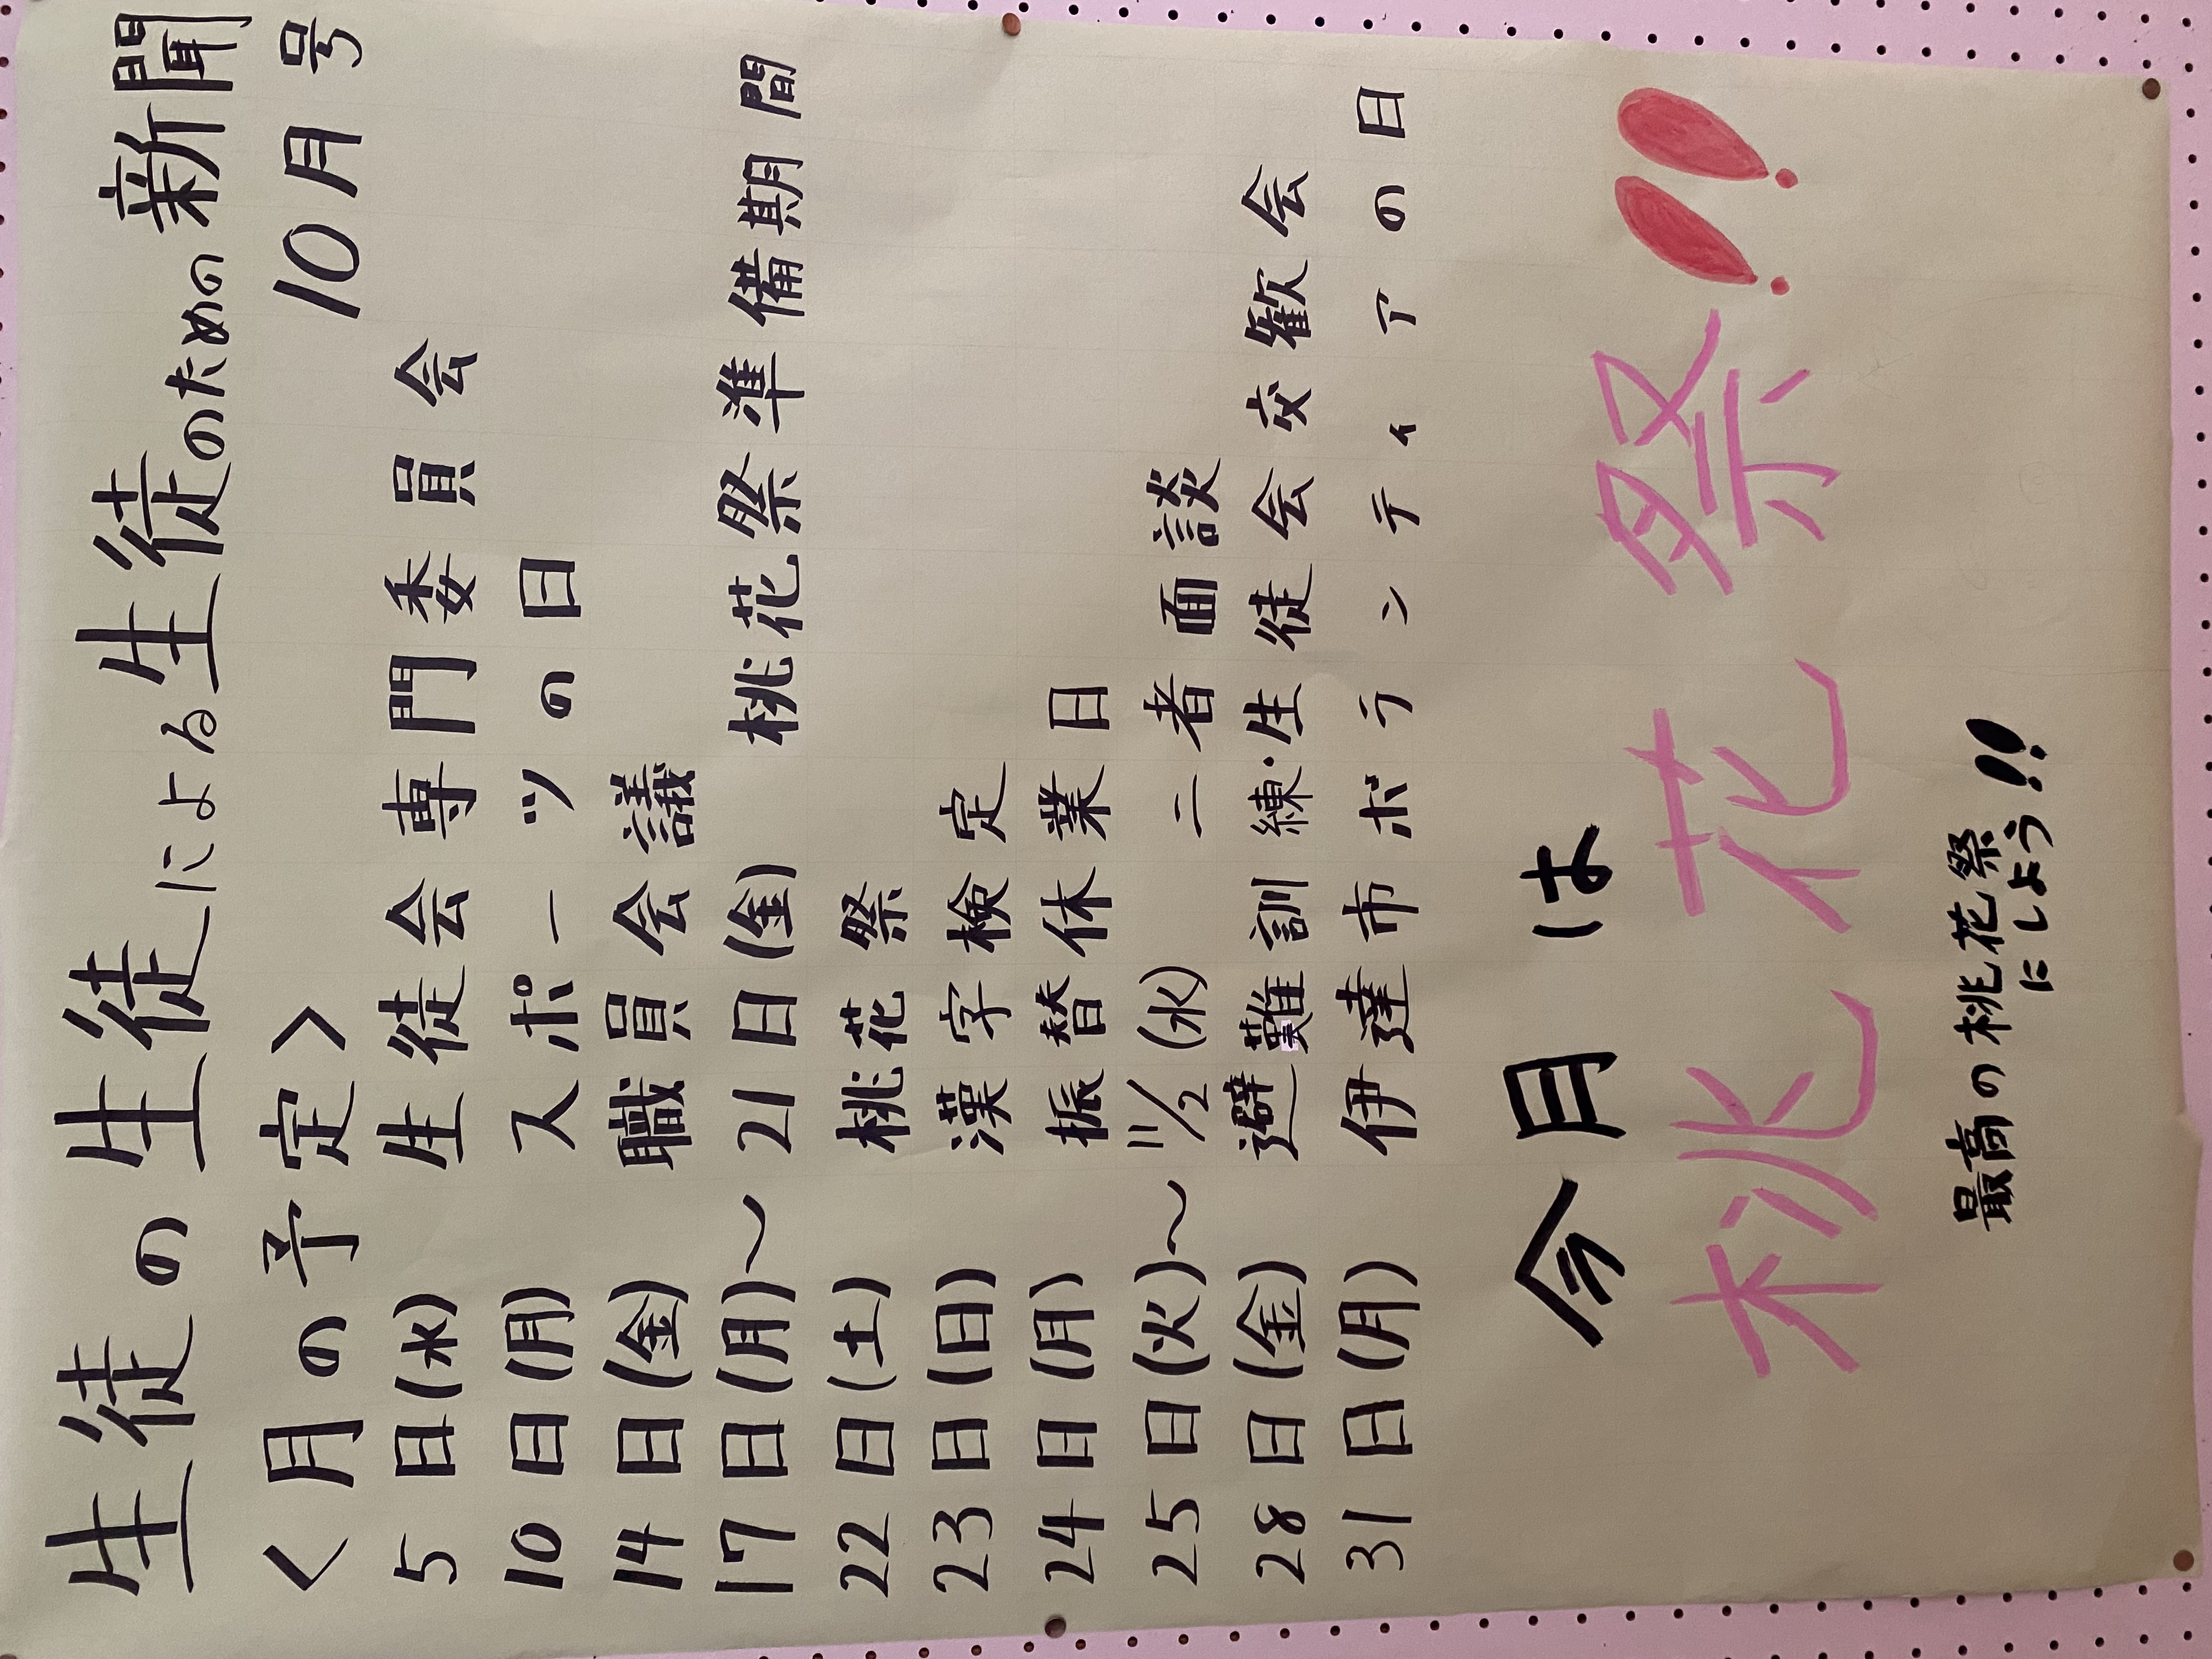 生徒の生徒による生徒のための新聞
10月号
<月の予定>
5日(水) 生徒会専門委員会
10日(月) スポーツの日
14日(金) 職員会議
17日(月)～21日(金) 桃花祭準備期間
22日(土) 桃花祭
23日(日) 漢字検定
24日(月) 振替休業日
25日(火)～11/2(水) 二者面談
28日(金) 避難訓練・生徒会交歓会
31日(月) 伊達市ボランティアの日
今月は
桃花祭!!
最高の桃花祭
にしよう!!